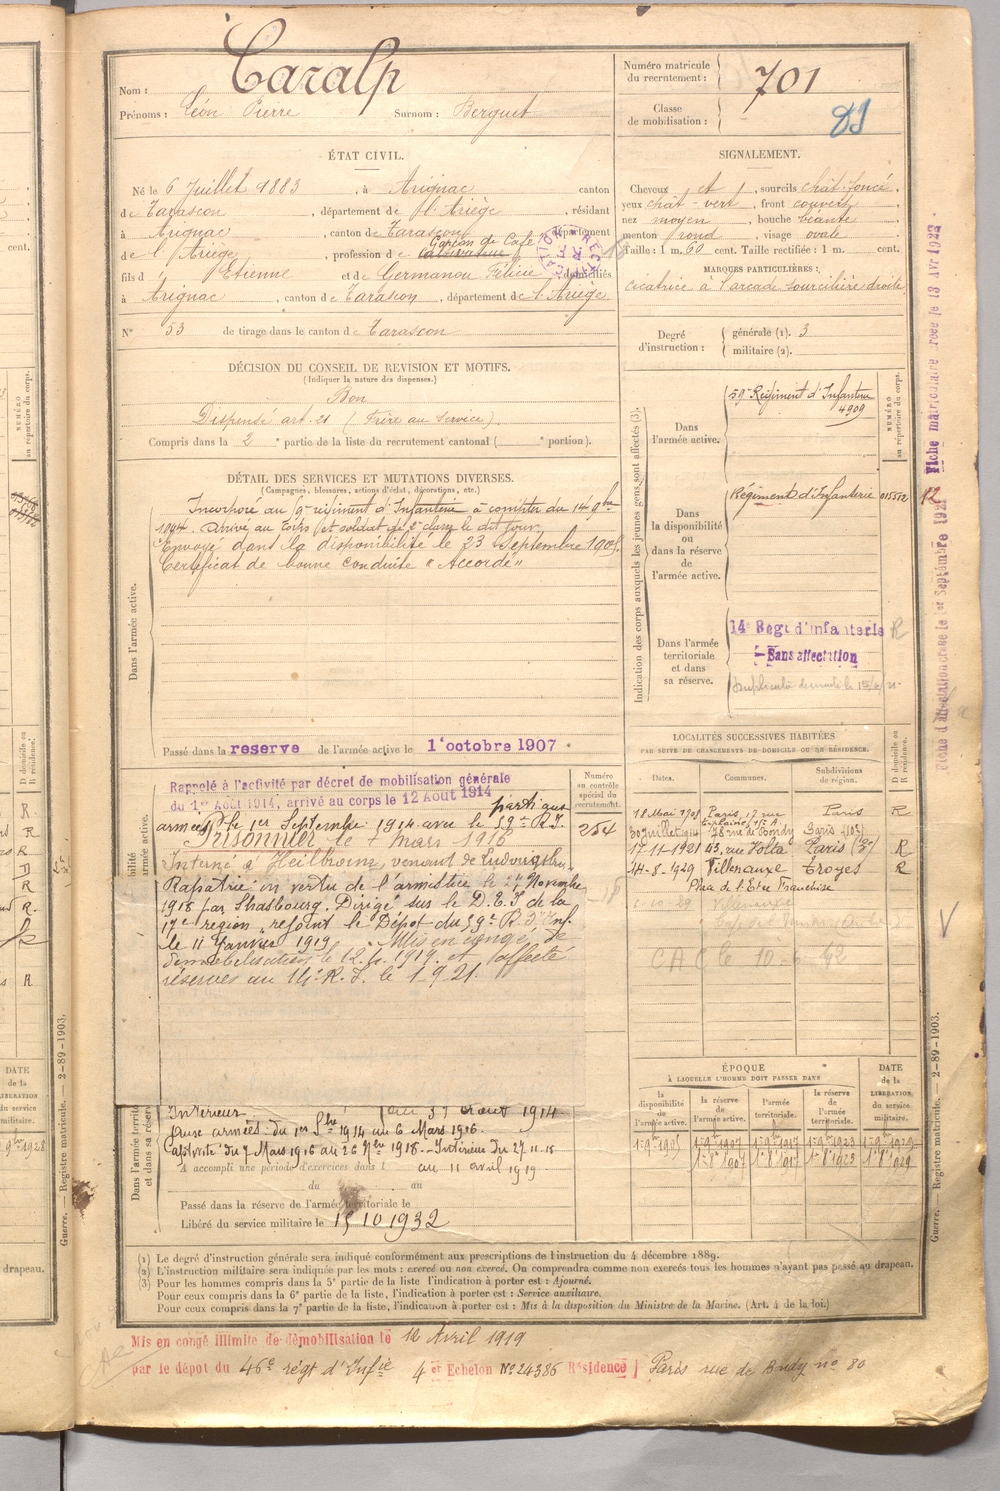 Nom : Caralp
Prénoms : Léon Pierre Surnom : Berguet
Numéro matricule du recrutement : 701
Classe de mobilisation :
ÉTAT CIVIL.
Né le 6 Juillet 1883, à Arignac canton
de Tarascon, département de l'Ariège, résidant
à Arignac, canton de Tarascon département
Garçon de Café
de l'Ariège, profession de cultivateur
fils d'Etienne et de Germanou Félicie, domiciliés
à Arignac, canton de Tarascon, département de l'Ariège.
N° 53 de tirage dans le canton de Tarascon
SIGNALEMENT.
Cheveux et, sourcils chât-foncé,
yeux chât-vert, front couvert
nez moyen, bouche béante
menton rond, visage ovale
Taille : 1 m. 60 cent. Taille rectifiée : 1 m. cent.
MARQUES PARTICULIÈRES :
cicatrice à l'arcade sourcilière droite
Degré d'instruction : générale (1). 3
militaire (2).
DÉCISION DU CONSEIL DE REVISION ET MOTIFS.
(Indiquer la nature des dispenses.)
Bon
Dispensé art. 21 (Frère au Service)
Compris dans la 2e partie de la liste du recrutement cantonal ( e portion).
DÉTAIL DES SERVICES ET MUTATIONS DIVERSES.
(Campagnes, blessures, actions d'éclat, décorations, etc.)
Dans l'armée active.
Incorporé au 59e régiment d'Infanterie à compter du 14 9bre
1904. Arrivé au Corps et soldat de 2e classe le dit jour.
Envoyé dans la disponibilité le 23 Septembre 1905.
Certificat de bonne conduite "Accordé"
Passé dans la reserve de l'armée active le 1er octobre 1907.
Indication des corps auxquels les jeunes gens sont affectés (3).
NUMÉRO au répertoire du corps.
Dans l'armée active.
59e Régiment d'Infanterie
4909
Dans la disponibilité ou dans la réserve de l'armée active.
Régiment d'Infanterie 015552
Dans l'armée territoriale et dans sa réserve.
14e Régt d'infanterie R
Sans affectation
Fiche matriculaire rose le 13 Avr 1922
Fiche d'affectation créée le 1er Septembre 1921
Rappelé à l'activité par décret de mobilisation générale
du 1er Août 1914, arrivé au corps le 12 Août 1914
parti aux
armées le 1er Septembre 1914 avec le 59e R.I.
Prisonnier le 7 mars 1916
Interné à Heilbronn, venant de Ludwigsburg
Rapatrié en vertu de l'armistice le 27 Novembre
1918 par Strasbourg. Dirigé sur le D.E.I de la
17e région, rejoint le Dépôt du 59e R. d'Inf.
le 11 Janvier 1919. Mis en congé de
démobilisation le 12.4.1919 et affecté
réserves au 14e R.I. le 1-9-21.
Numéro au contrôle spécial du recrutement.
254
LOCALITÉS SUCCESSIVES HABITÉES
PAR SUITE DE CHANGEMENTS DE DOMICILE OU DE RÉSIDENCE.
Dates. Communes. Subdivisions de région. D domicile ou R résidence.
18 Mai 1908 Paris, 17 rue Paris R
30 Juillet 1914 78 rue de Bondy Paris (10e)
17-11-1921 43, rue Volta Paris (3e) R
14-8-1929 Villenauxe Troyes R
1-10-29 Villenauxe
CAC le 10-6-42
ÉPOQUE
À LAQUELLE L'HOMME DOIT PASSER DANS
la disponibilité de l'armée active. la réserve de l'armée active. l'armée territoriale. la réserve de l'armée territoriale. DATE de la LIBÉRATION du service militaire.
1-9-1905 1-9-1907 1-9-1917 1-9-1923 1-9-1929
1er 8e 1907 1er 8e 1917 1er 8e 1923 1er 8e 1929
Dans l'armée territoriale et dans sa réserve.
Intérieur. au 31 Aout 1914
aux armées : du 1er Sbre 1914 au 6 Mars 1916.
Captivité du 7 Mars 1916 au 26 Nov 1918. Intérieur Du 27.11.18
A accompli une période d'exercices dans l au 11 avril 1919
du au
Passé dans la réserve de l'armée territoriale le
Libéré du service militaire le 15 10 1932
(1) Le degré d'instruction générale sera indiqué conformément aux prescriptions de l'instruction du 4 décembre 1889.
(2) L'instruction militaire sera indiquée par les mots : exercé ou non exercé. On comprendra comme non exercés tous les hommes n'ayant pas passé au drapeau.
(3) Pour les hommes compris dans la 5e partie de la liste l'indication à porter est : Ajourné.
Pour ceux compris dans la 6e partie de la liste, l'indication à porter est : Service auxiliaire.
Pour ceux compris dans la 7e partie de la liste, l'indication à porter est : Mis à la disposition du Ministre de la Marine. (Art. 4 de la loi.)
Guerre. — Registre matricule. — 2-89-1903.
Mis en congé illimité de démobilisation le 12 Avril 1919
par le dépôt du 46e régt d'Infie 4e Echelon No 24386 Résidence Paris rue de Bondy no 80